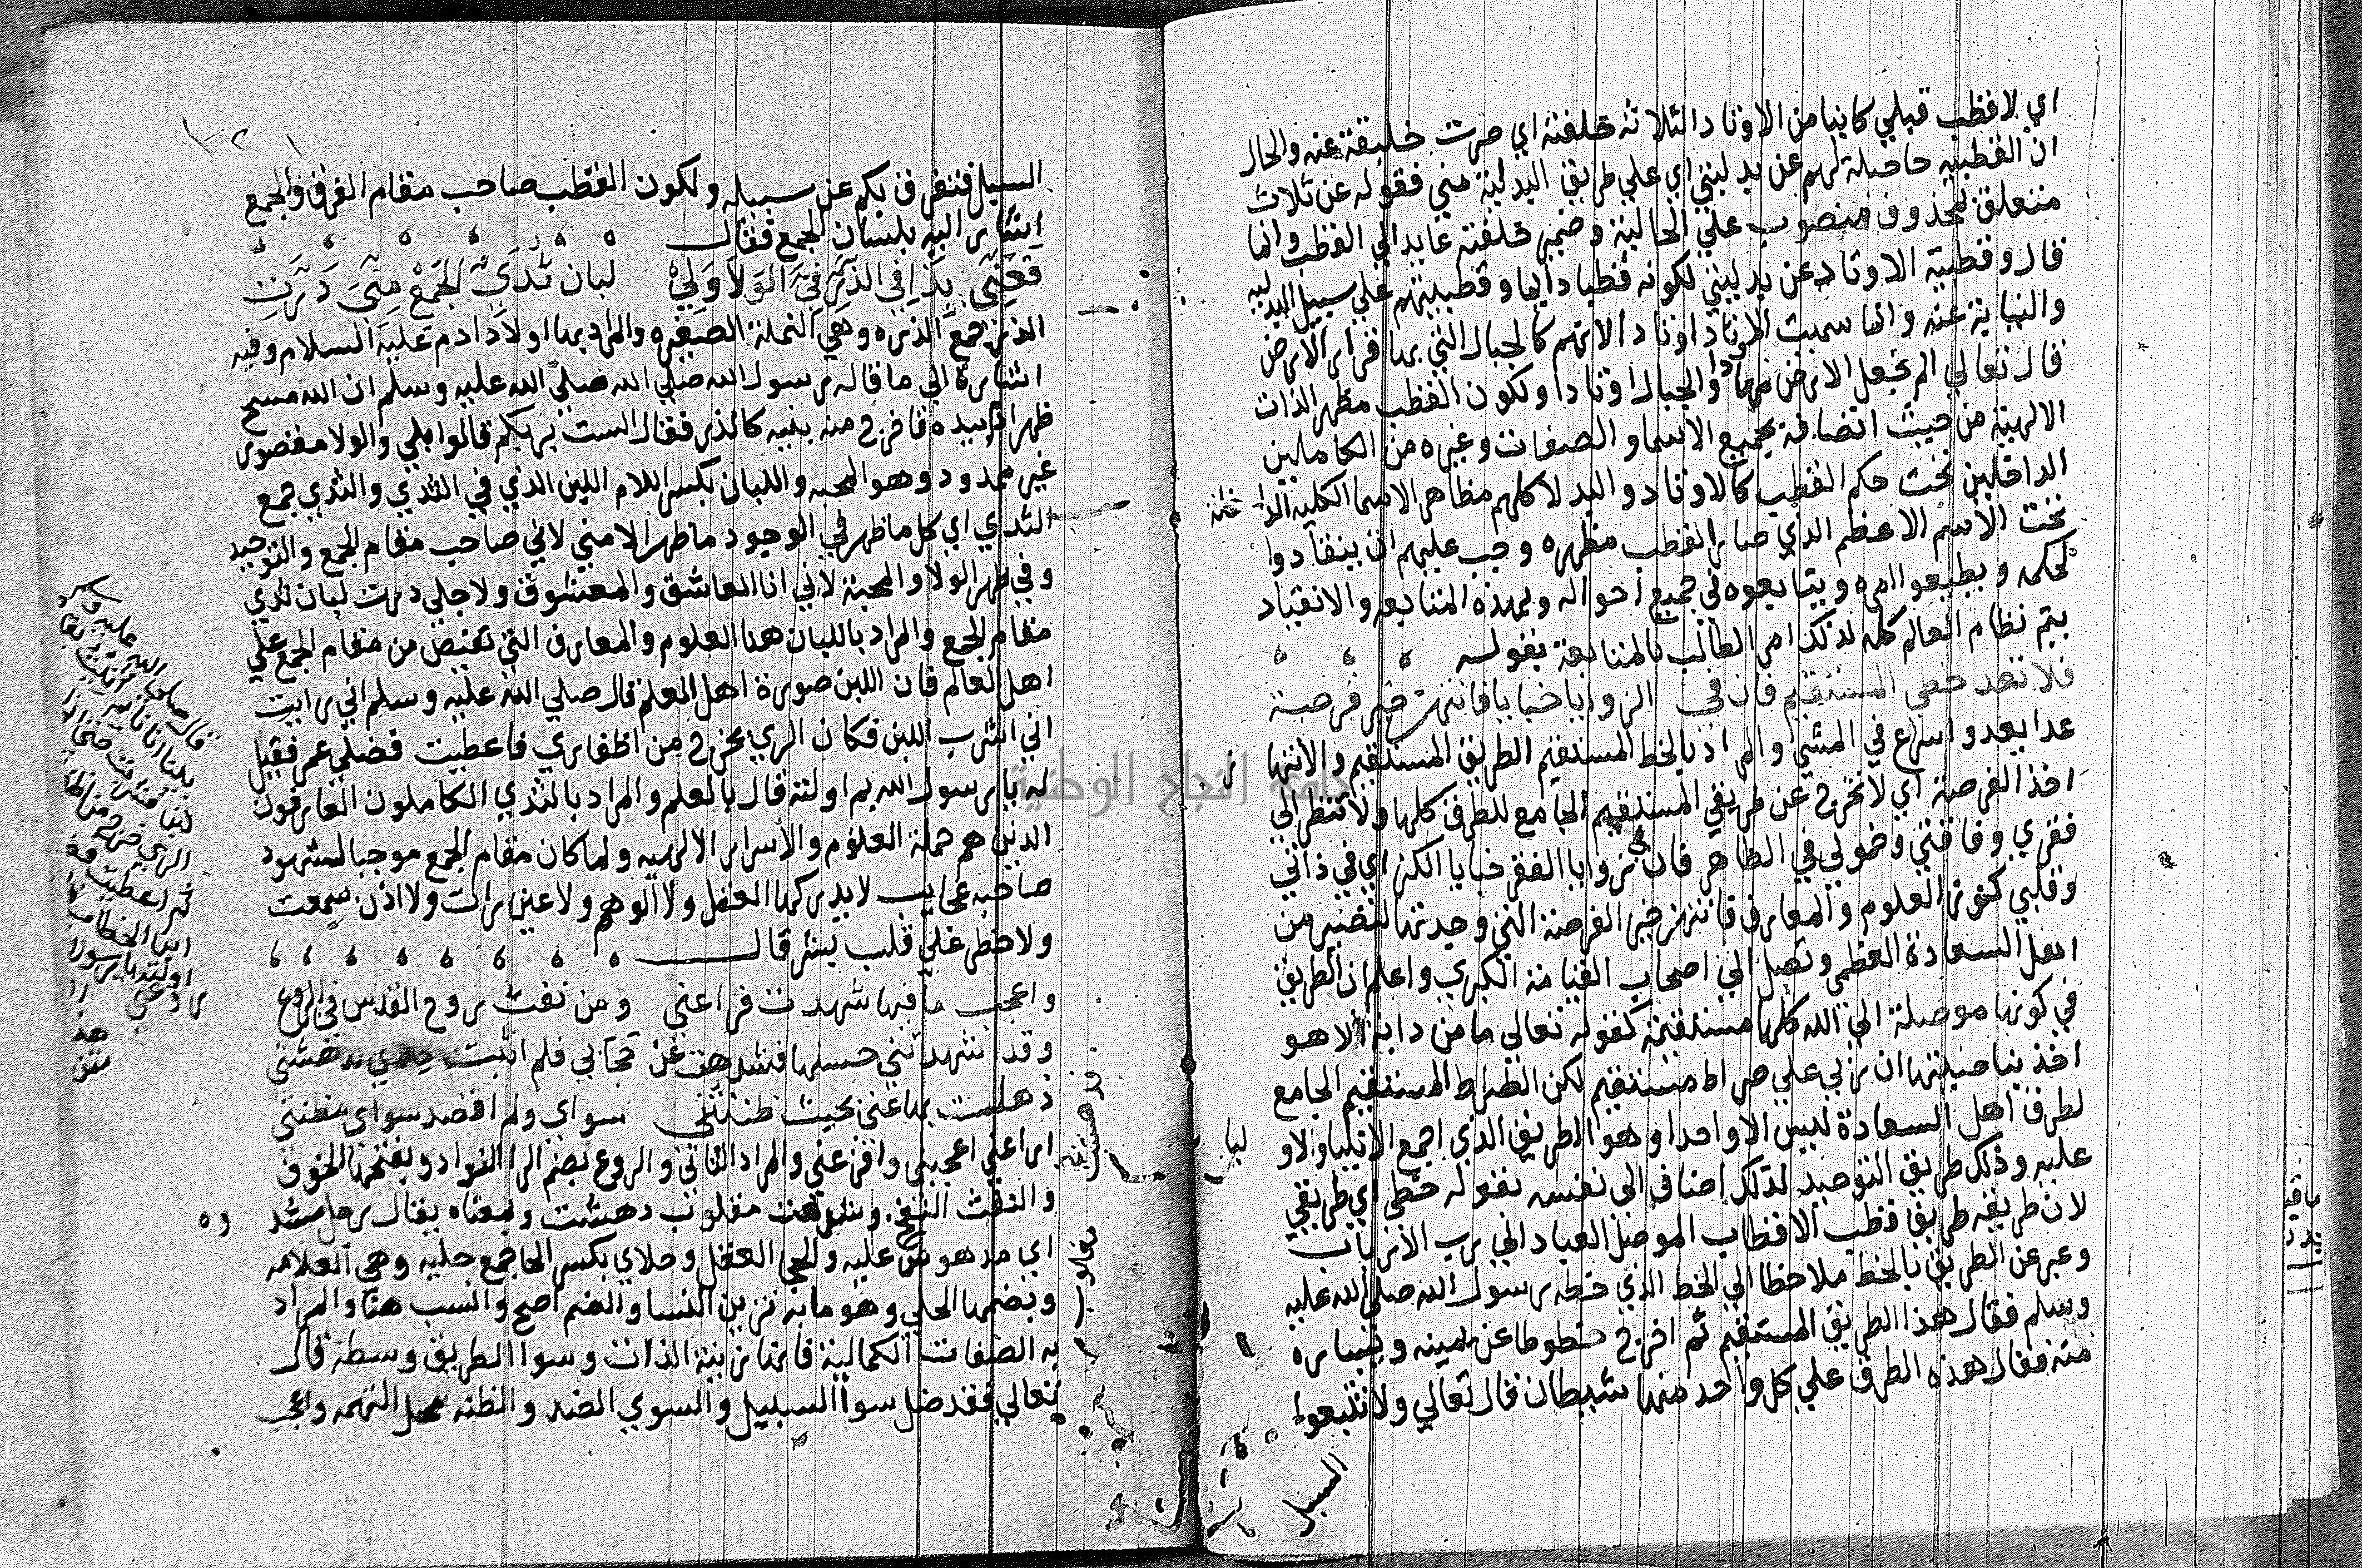 اي لا قطب قبلي كاينا من الاوتاد الثلاثة خلفته اي صرت خليفة عنه والحال
ان القطبيه حاصلة لهم عن بدليتي اي علي طريق البدلية مني فقوله عن ثلاث
متعلق بمحذوف منصوب علي الحالية وضمير خلفته عايد الي القطب وانما
قال وقطبية الاوتاد عن بدليتي لكونه قطبا دايما وقطبيتهم علي سبيل البدليه
والنيابة عنه وانما سميت الاوتاد اوتادا لانهم كالجبال التي بها قرار الارض
قال تعالي الم نجعل الارض مهادا والجبال اوتادا ولكون القطب مظهر الذات
الالهية من حيث اتصافه بجميع الاسما والصفات وغيره من الكاملين
الداخلين تحت حكم القطب كالاوتاد والبدلا كلهم مظاهر الاسما الكليه الداخله
تحت الاسم الاعظم الذي صار القطب مظهره وجب عليهم ان ينقادوا
لحكمه ويطيعوا امره ويتابعوه في جميع احواله ولهذه المتابعه والانقياد
يتم نظام العالم كله لذلك امر الطالب بالمتابعة بقوله
فلا تعد خطي المستقيم فان في الزوايا خبايا فانتهز خير فرصة
عدا يعدو اسرع في المشي والمراد بالخط المستقيم الطريق المستقيم والانتهاز
اخذ الفرصة اي لا تخرج عن طريقي المستقيم الجامع للطرق كلها ولا تنظر الي
فقري وفاقتي وخمولي في الظاهر فان في زوايا الفقر خبايا الكنز اي في ذاتي
وقلبي كنوز العلوم والمعارف فانتهز خير الفرصة التي وجدتها لتصير من
اهل السعادة العظمي وتصل الي اصحاب القيامة الكبري واعلم ان الطريق
في كونها موصلة الي الله كلها مستقيمة كقوله تعالي ما من دابة الا هو
اخذ بناصيتها ان ربي علي صراط مستقيم لكن الصراط المستقيم الجامع
لطرق اهل السعادة ليس الا واحدا وهو الطريق الذي اجمع الانبيا والاوليا
عليه وذلك طريق التوحيد لذلك اضاف الي نفسه بقوله خطي اي طريقي
لان طريقه طريق قطب الاقطاب الموصل العباد الي رب الارباب
وعبر عن الطريق بالخط ملاحظا الي الخط الذي خطه رسول الله صلي الله عليه
وسلم فقال هذا الطريق المستقيم ثم اخرج خطوطا عن يمينه ويساره
منه فقال هذه الطرق علي كل واحد منها شيطان قال تعالي ولا تتبعوا
السبل
السبل فتفرق بكم عن سبيله ولكون القطب صاحب مقام الفرق والجمع
اشار اليه بلسان الجمع فقال
فعني بدا في الذر في الولا ولي لبان ثدي الجمع مني درت
الذر جمع الذره وهي النملة الصغيره والمراد بها اولاد ادم عليه السلام وفيه
اشارة الي ما قاله رسول الله صلي الله عليه وسلم ان الله مسح
ظهر ادم بيده فاخرج منه بنيه كالذر فقال الست بربكم قالوا بلي والولا مقصور
غير ممدود وهو المحبه واللبان بكسر اللام اللبن الذي في الثدي والثدي جمع
الثدي اي كل ما ظهر في الوجود ما ظهر الا مني لاني صاحب مقام الجمع والتوحيد
وفي ظهر الولا والمحبة لاني انا العاشق والمعشوق ولاجلي درت لبان ثدي
مقام الجمع والمراد باللبان هنا العلوم والمعارف التي تفيض من مقام الجمع علي
اهل العالم فان اللبن صورة اهل العلم قال صلي الله عليه وسلم اني رايت
اني اشرب اللبن فكان الري يخرج من اظفاري فاعطيت فضلي عمر فقيل
له يا رسول الله بم اولته قال بالعلم والمراد بالثدي الكاملون العارفون
الذين هم حملة العلوم والاسرار الالهيه ولما كان مقام الجمع موجبا لشهود
صاحبه عجايب لا يدركها العقل ولا الوهم ولا عين رات ولا اذن سمعت
ولا خطر علي قلب بشر قال
واعجب ما فيها شهدت فراعني ومن نفث روح القدس في الروع
وقد اشهدتني حسنها فشدهت عن حجاي فلم اثبت حلاي لدهشتي
ذهلت بها عني بحيث ظننتني سواي ولم اقصد سواي مظنتي
راعني اعجبني وافزعني والمراد الثاني والروع بضم الرا الفواد وبفتحها الخوف
والنفث النفخ وشدهت مقلوب دهشت ومعناه يقال رجل مشدوه
اي مدهوش عليه والحجي العقل وحلاي بكسر الحا جمع حليه وهي العلامه
وبضمها الحلي وهو ما به تزين النسا والضم اصح وانسب هنا والمراد
به الصفات الكمالية فانها زينة الذات وسوا الطريق وسطه قال
تعالي فقد ضل سوا السبيل والسوي الضد والظنه محل التهمه واعجب
قال صلي الله عليه وسلم
بينا انا نايم
لبن فشربت
الري يخرج من
ثم اعطيت
ابن الخطاب